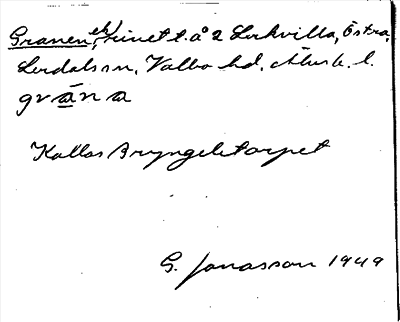 Granen, rivet t. å 2 Lerkvilla, Östra,
Lerdals sn, Valbo hd, Älvsb. l.
gräna
Kallas Bryngelstorpet
G. Jonasson 1949